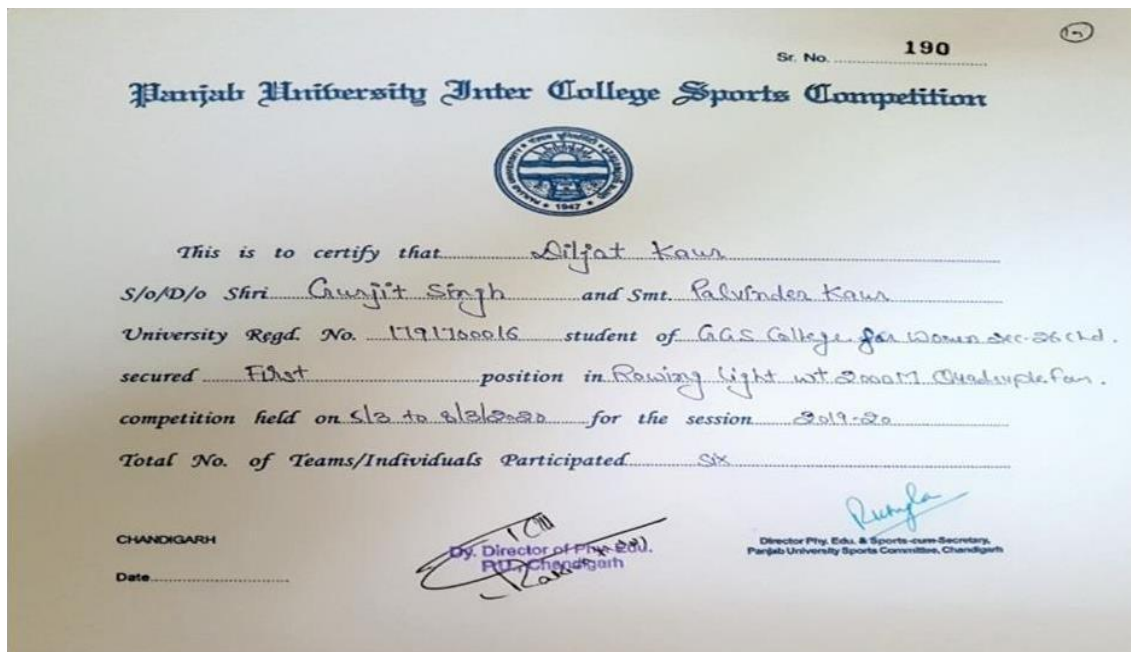 Sr. No. 190
Panjab University Inter College Sports Competition
PANJAB UNIVERSITY
1947
This is to certify that Diljat Kaur
S/o/D/o Shri Gurjit Singh and Smt. Palvinder Kaur
University Regd. No. 1791700016 student of GGS College for Women Sec-26 Chd.
secured First position in Rowing Light wt 2000M Quadruple
competition held on 5/3 to 8/3/2020 for the session 2019-20
Total No. of Teams/Individuals Participated Six
CHANDIGARH
Date
Dy. Director of Phy. Edu.
P.U., Chandigarh
Director Phy. Edu. & Sports-cum-Secretary,
Panjab University Sports Committee, Chandigarh